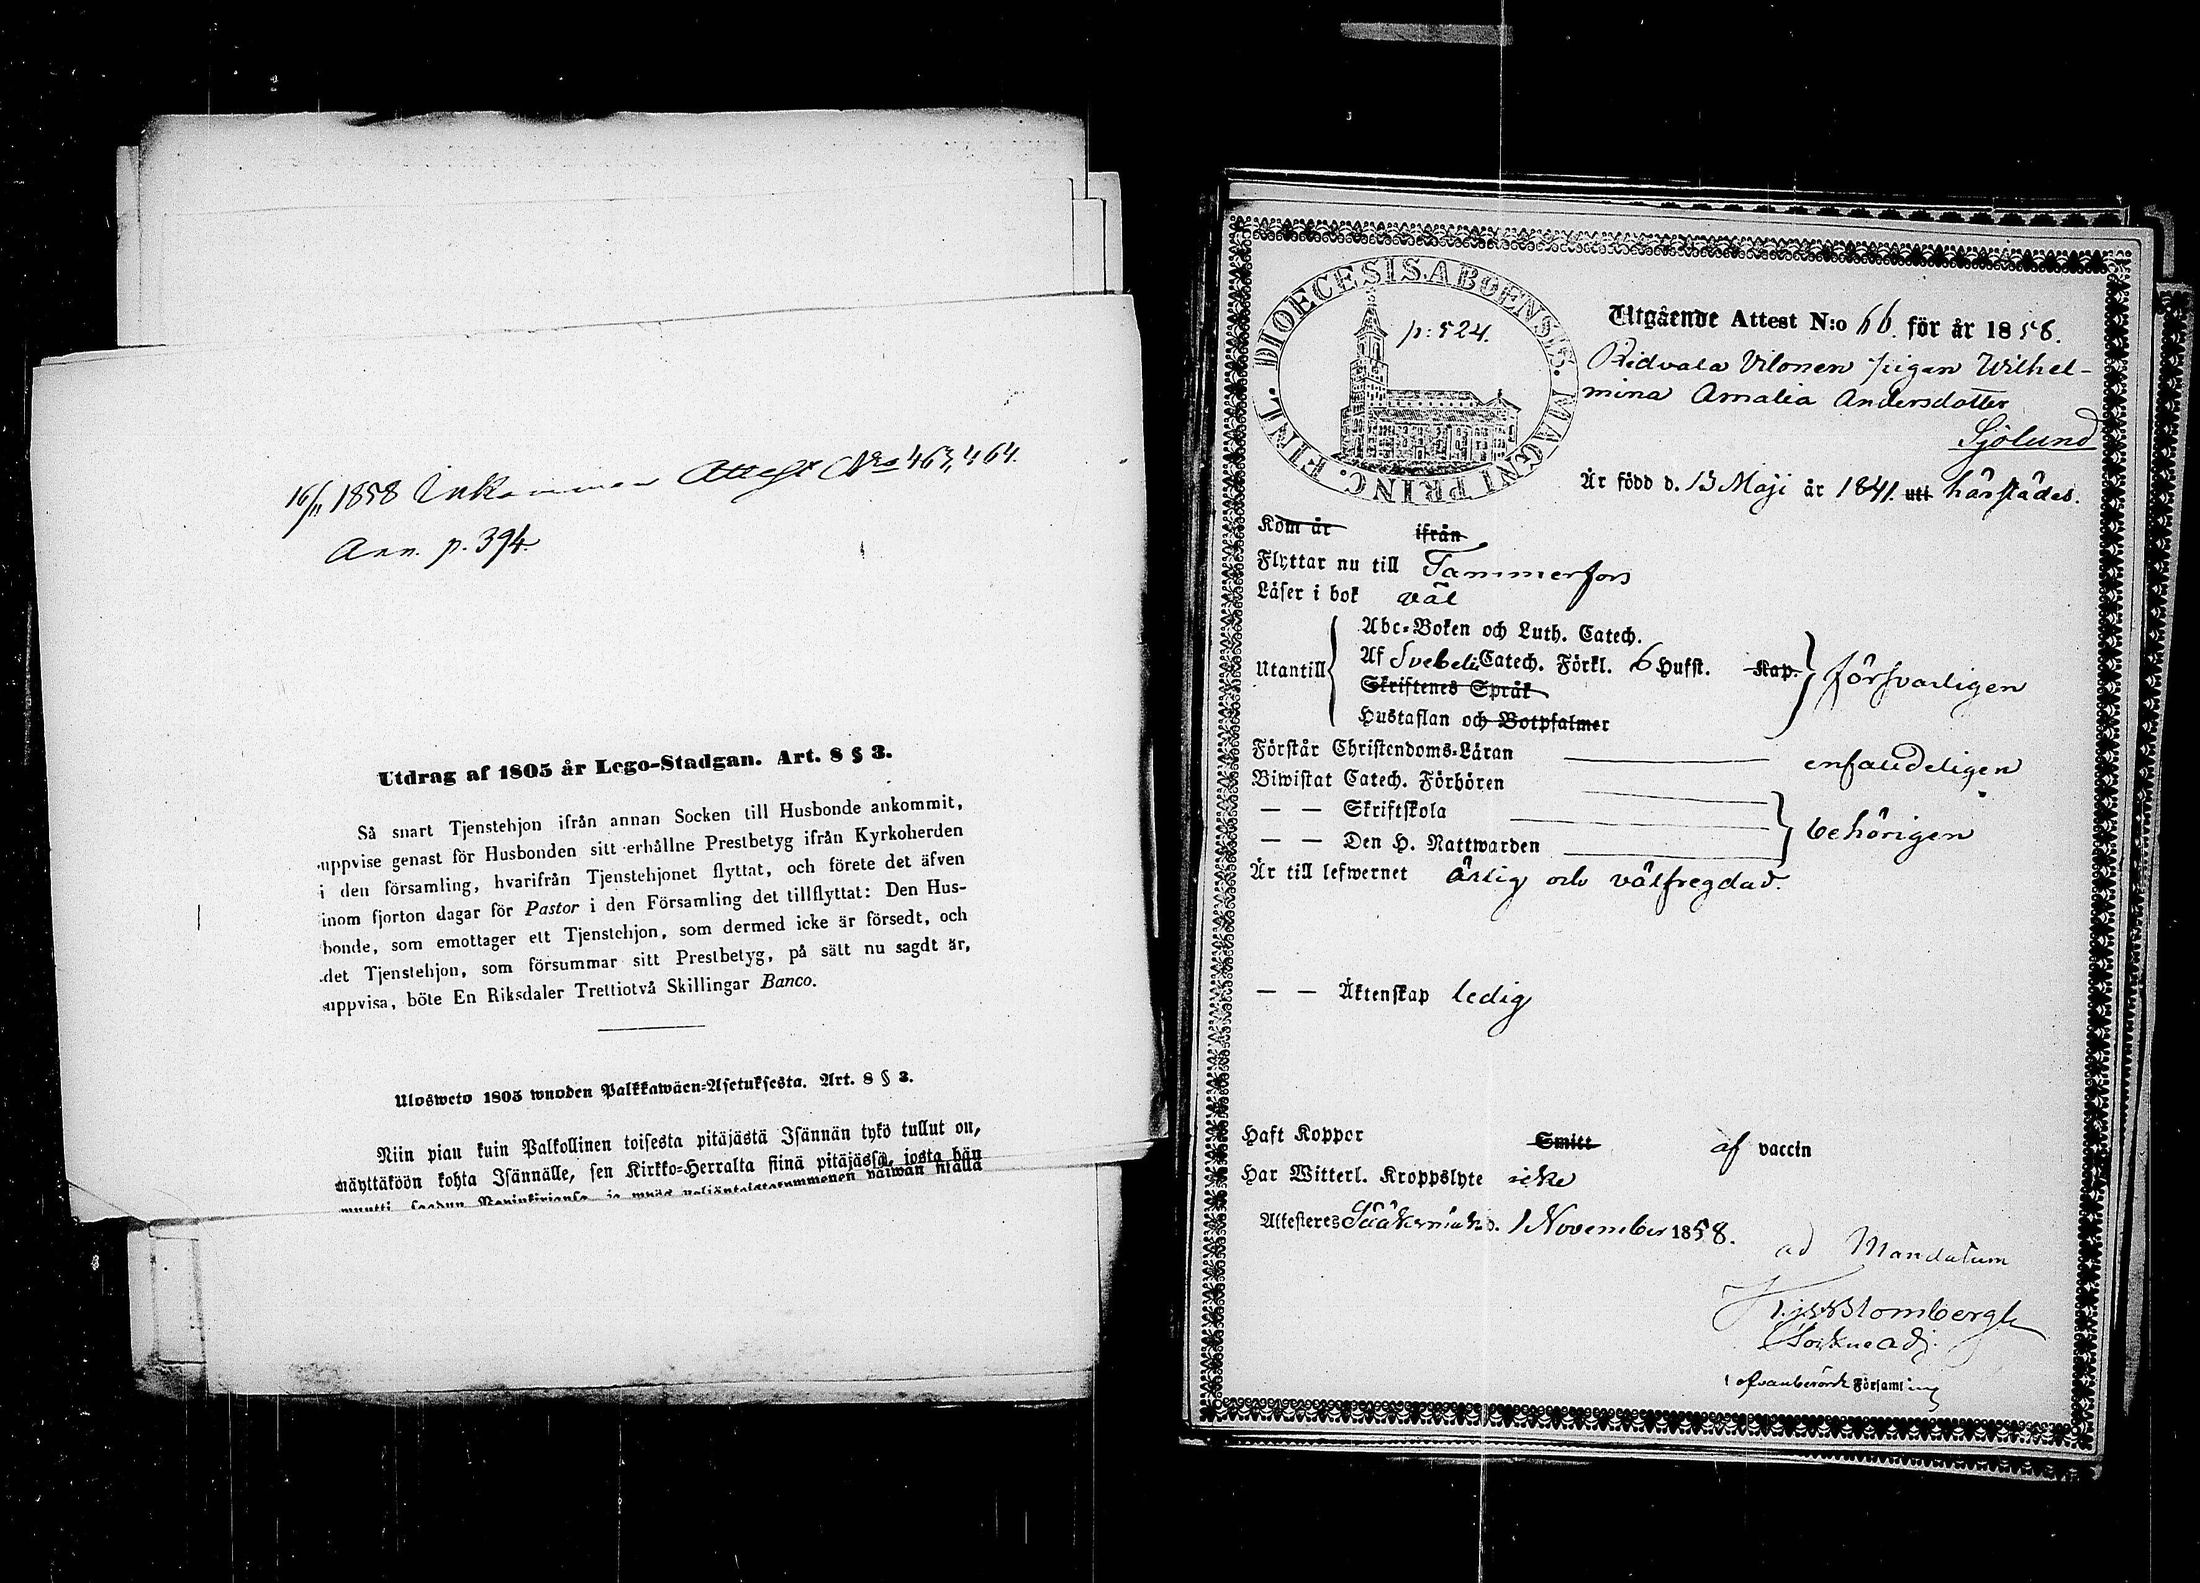 16/11 1858 Inkommen Attest Nro 463, 464.
Ann. p. 394.
Utdrag af 1805 år Lego-Stadgan. Art. 8 § 3.
Så snart Tjenstehjon ifrån annan Socken till Husbonde ankommit,
uppvise genast för Husbonden sitt erhållne Prestbetyg ifrån Kyrkoherden
i den församling, hvarifrån Tjenstehjonet flyttat, och förete det äfven
inom fjorton dagar för Pastor i den Församling det tillflyttat: Den Hus-
bonde, som emottager ett Tjenstehjon, som dermed icke är försedt, och
det Tjenstehjon, som försummar sitt Prestbetyg, på sätt nu sagdt är,
uppvisa, böte En Riksdaler Trettiotvå Skillingar Banco.
Ulosweto 1805 wuoden Palkkawäen-Asetuksesta. Art. 8 § 3.
Niin pian kuin Palkollinen toisesta pitäjästä Isännän tykö tullut on,
näyttäköön kohta Isännälle, sen Kirkko-Herralta siinä pitäjässä, josta hän
DIOECESIS. ABOENSIS. MAGNI PRINC. FINL.
p: 524.
Utgående Attest N:o 66. för år 1858.
Ridvala Vilonen pigan Wilhel-
mina Amalia Andersdotter
Sjölund
Är född d. 13 Maji år 1841. uti härstädes.
Kom år ifrån
Flyttar nu till Tammerfors
Läser i bok väl
Utantill
Abc-Boken och Luth. Catech.
Af Svebelii Catech. Förkl. 6 Hufst. Kap.
Skriftenes Språk
Hustaflan och Botpsalmer
försvarligen
Förstår Christendoms-Läran enfaldeligen
Biwistat Catech. Förhören
— — Skriftskola
— — Den H. Nattwarden
behörigen
Är till lefwernet ärlig och välfregdad.
— — Äktenskap ledig
Haft Koppor Smitt af vaccin
Har Witterl. Kroppslyte icke
Attesteres Sääksmäki d. 1 November 1858.
ad Mandatum
Blombergh
Sockneadj.
i ofvanberörde Församling